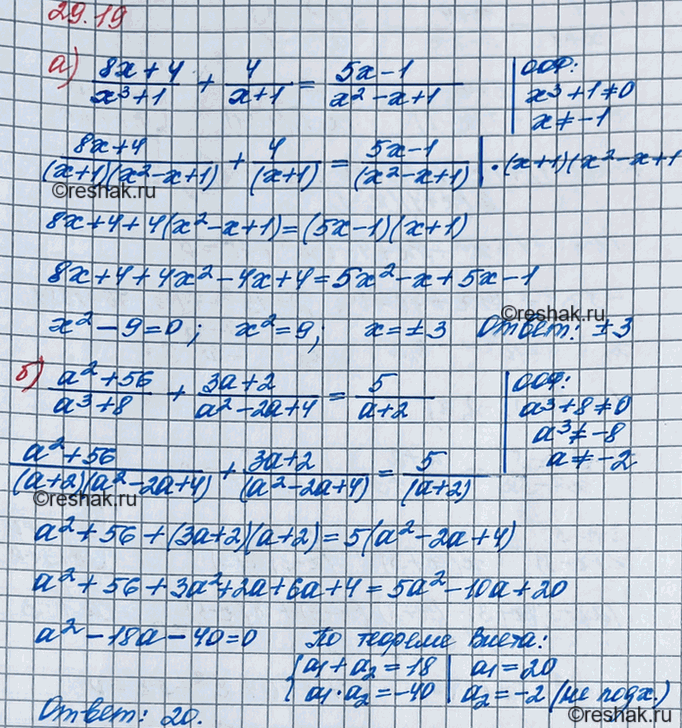 29.19
а) (8x+4)/(x³+1) + 4/(x+1) = (5x-1)/(x²-x+1) | ООФ:
x³+1≠0
x≠-1
(8x+4)/((x+1)(x²-x+1)) + 4/(x+1) = (5x-1)/(x²-x+1) | ·(x+1)(x²-x+1
©reshak.ru
8x+4+4(x²-x+1)=(5x-1)(x+1)
8x+4+4x²-4x+4=5x²-x+5x-1
©reshak.ru
x²-9=0; x²=9; x=±3 Ответ: ±3
б) (a²+56)/(a³+8) + (3a+2)/(a²-2a+4) = 5/(a+2) | ООФ:
a³+8≠0
a³≠-8
a≠-2
(a²+56)/((a+2)(a²-2a+4)) + (3a+2)/(a²-2a+4) = 5/(a+2)
©reshak.ru
a²+56+(3a+2)(a+2)=5(a²-2a+4)
a²+56+3a²+2a+6a+4=5a²-10a+20
a²-18a-40=0 По теореме Виета:
{a₁+a₂=18 | a₁=20
{a₁·a₂=-40 | a₂=-2 (не подх.)
©reshak.ru
Ответ: 20.